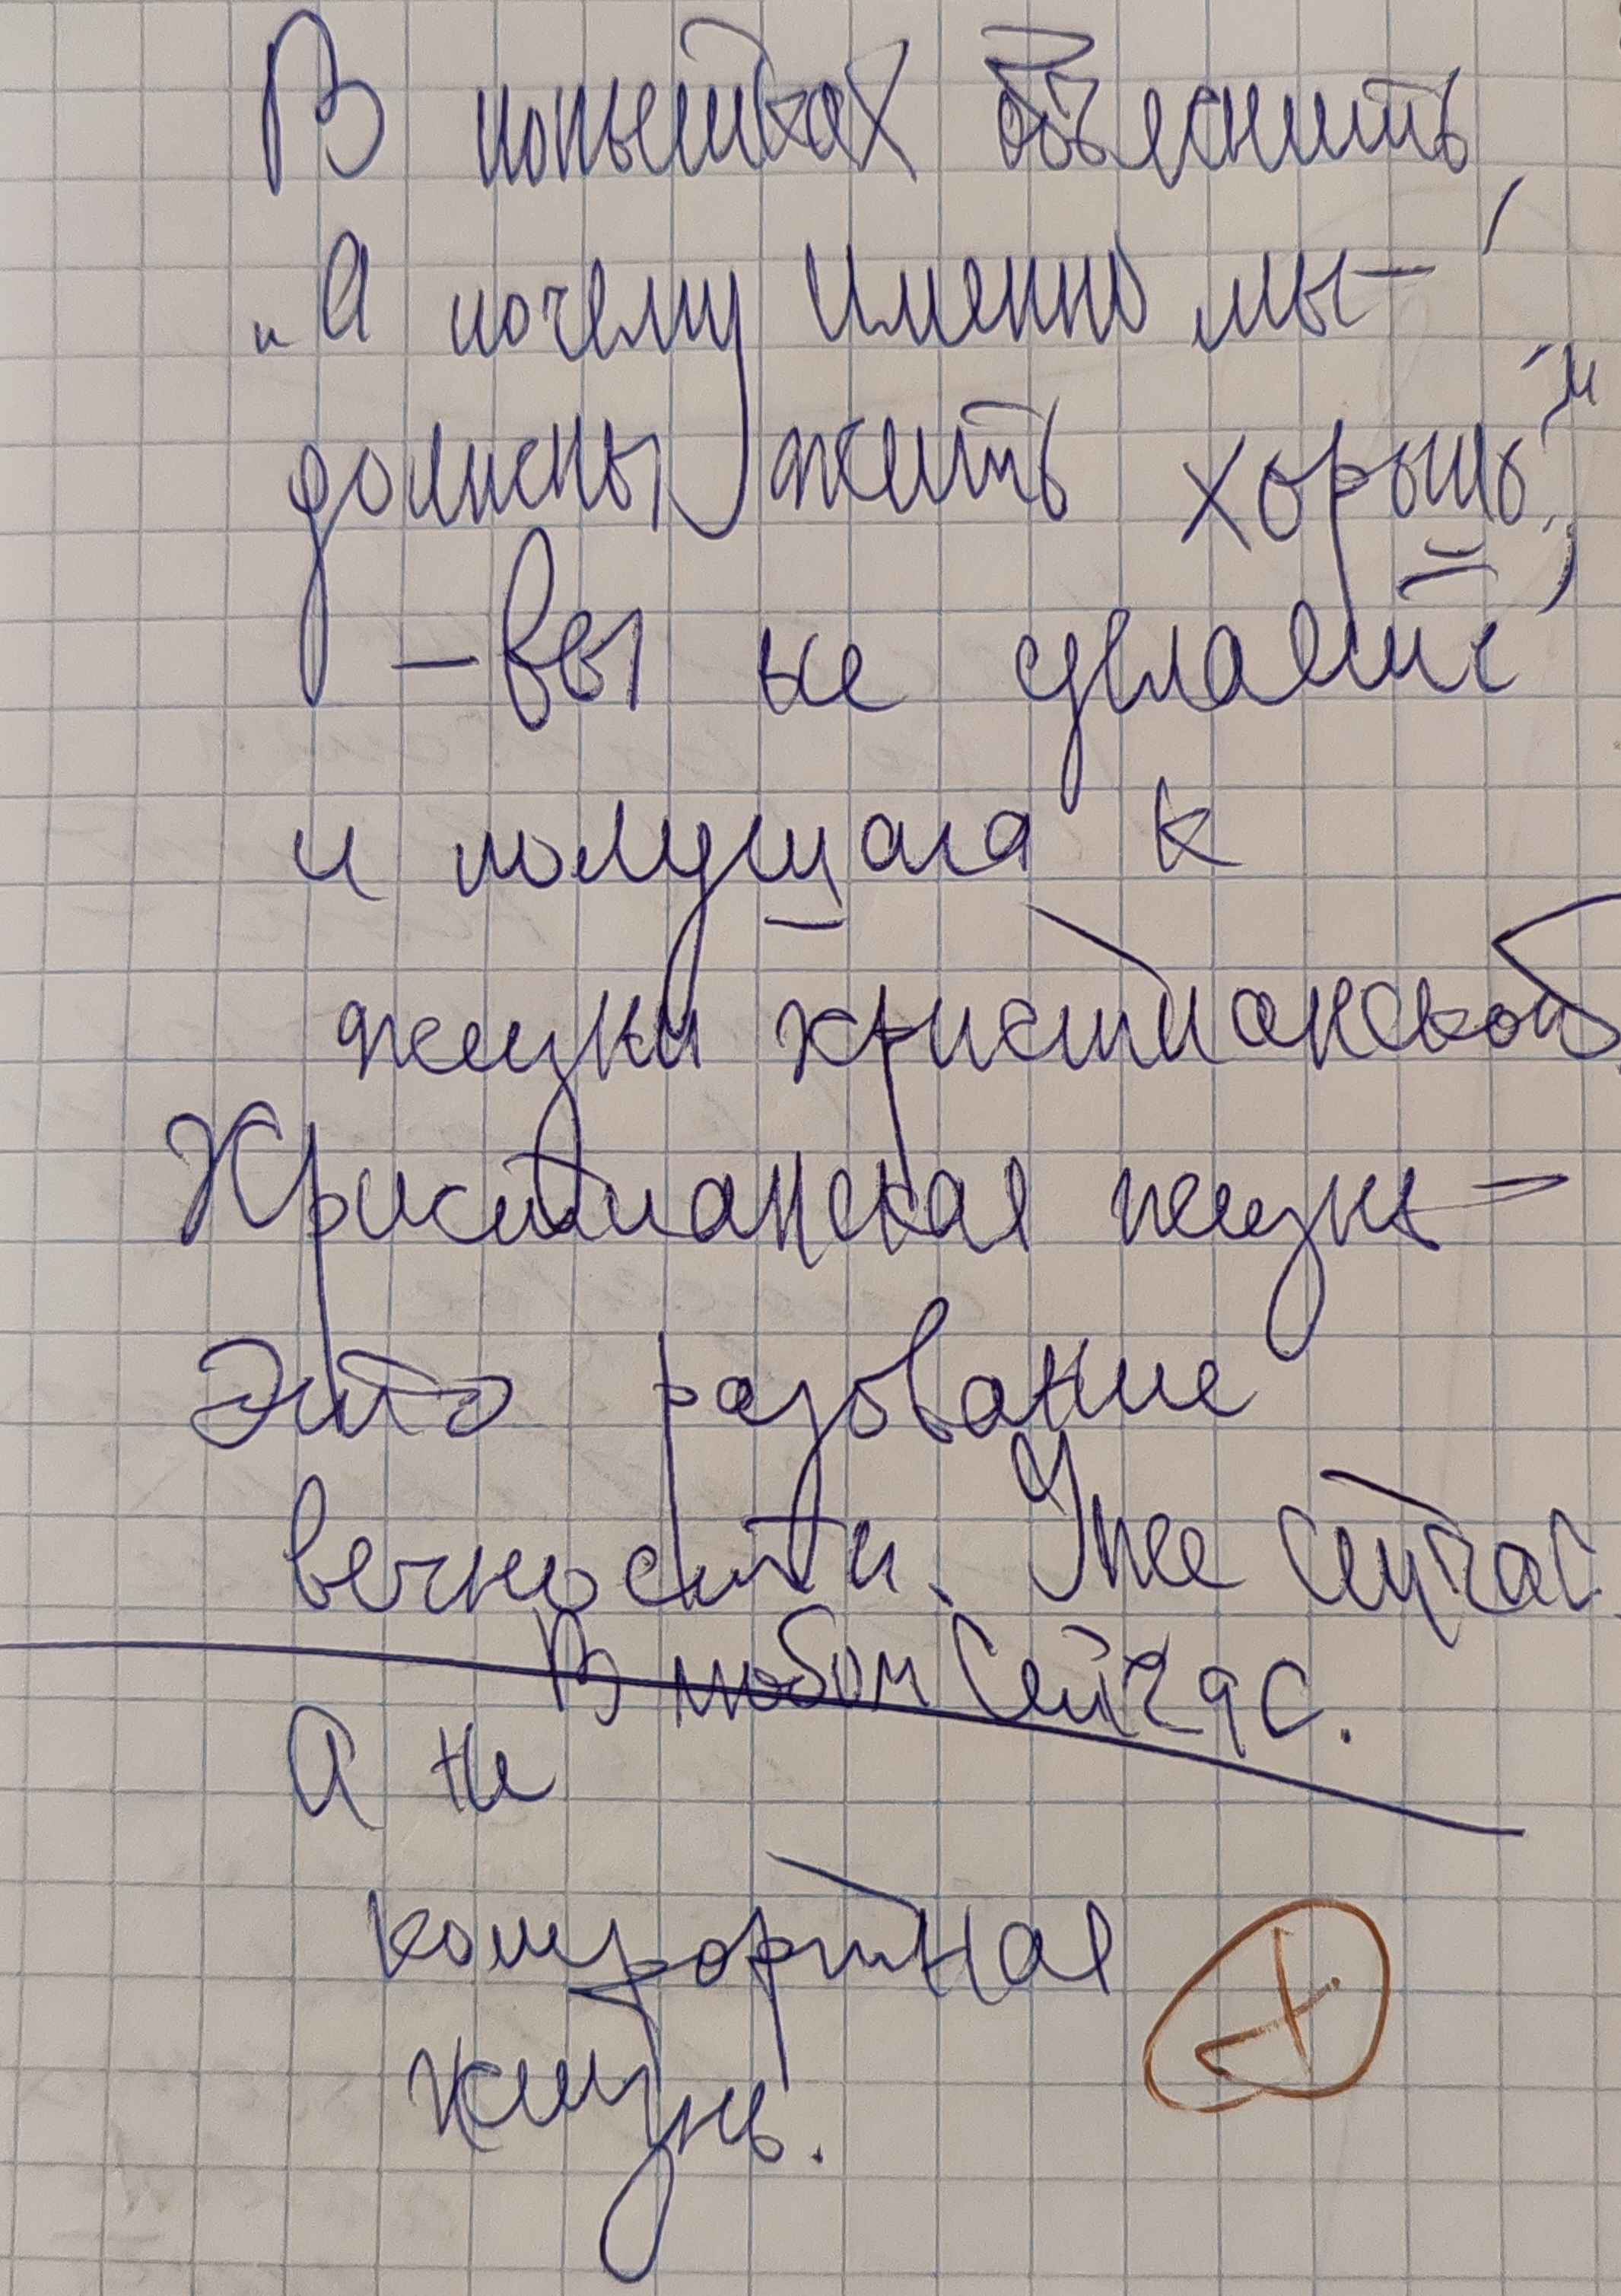 В попытках объяснить,
„А почему именно мы –
должны жить хорошо?“,
– вы не сделаете
и полушага к
жизни христианской.
Христианская жизнь –
Это разование
вечности. Уже сейчас.
В любом Сейчас.
А не
комфортная
жизнь.